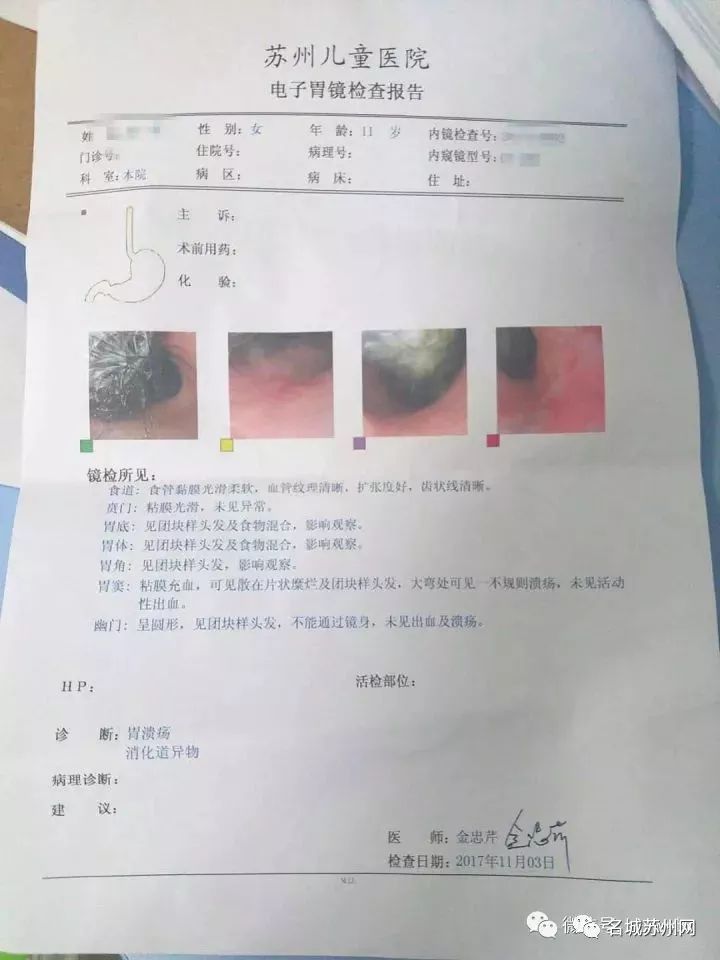 苏州儿童医院
电子胃镜检查报告
姓 性 别：女 年 龄：11 岁 内镜检查号：
门诊号： 住院号： 病理号： 内窥镜型号：
科 室：本院 病 区： 病 床： 住 址：
主 诉：
术前用药：
化 验：
镜检所见：
食道：食管黏膜光滑柔软，血管纹理清晰，扩张度好，齿状线清晰。
贲门：粘膜光滑，未见异常。
胃底：见团块样头发及食物混合，影响观察。
胃体：见团块样头发及食物混合，影响观察。
胃角：见团块样头发，影响观察。
胃窦：粘膜充血，可见散在片状糜烂及团块样头发，大弯处可见一不规则溃疡，未见活动
性出血。
幽门：呈圆形，见团块样头发，不能通过镜身，未见出血及溃疡。
HP： 活检部位：
诊 断：胃溃疡
消化道异物
病理诊断：
建 议：
医 师：金忠芹 金忠芹
检查日期：2017年11月03日
名城苏州网